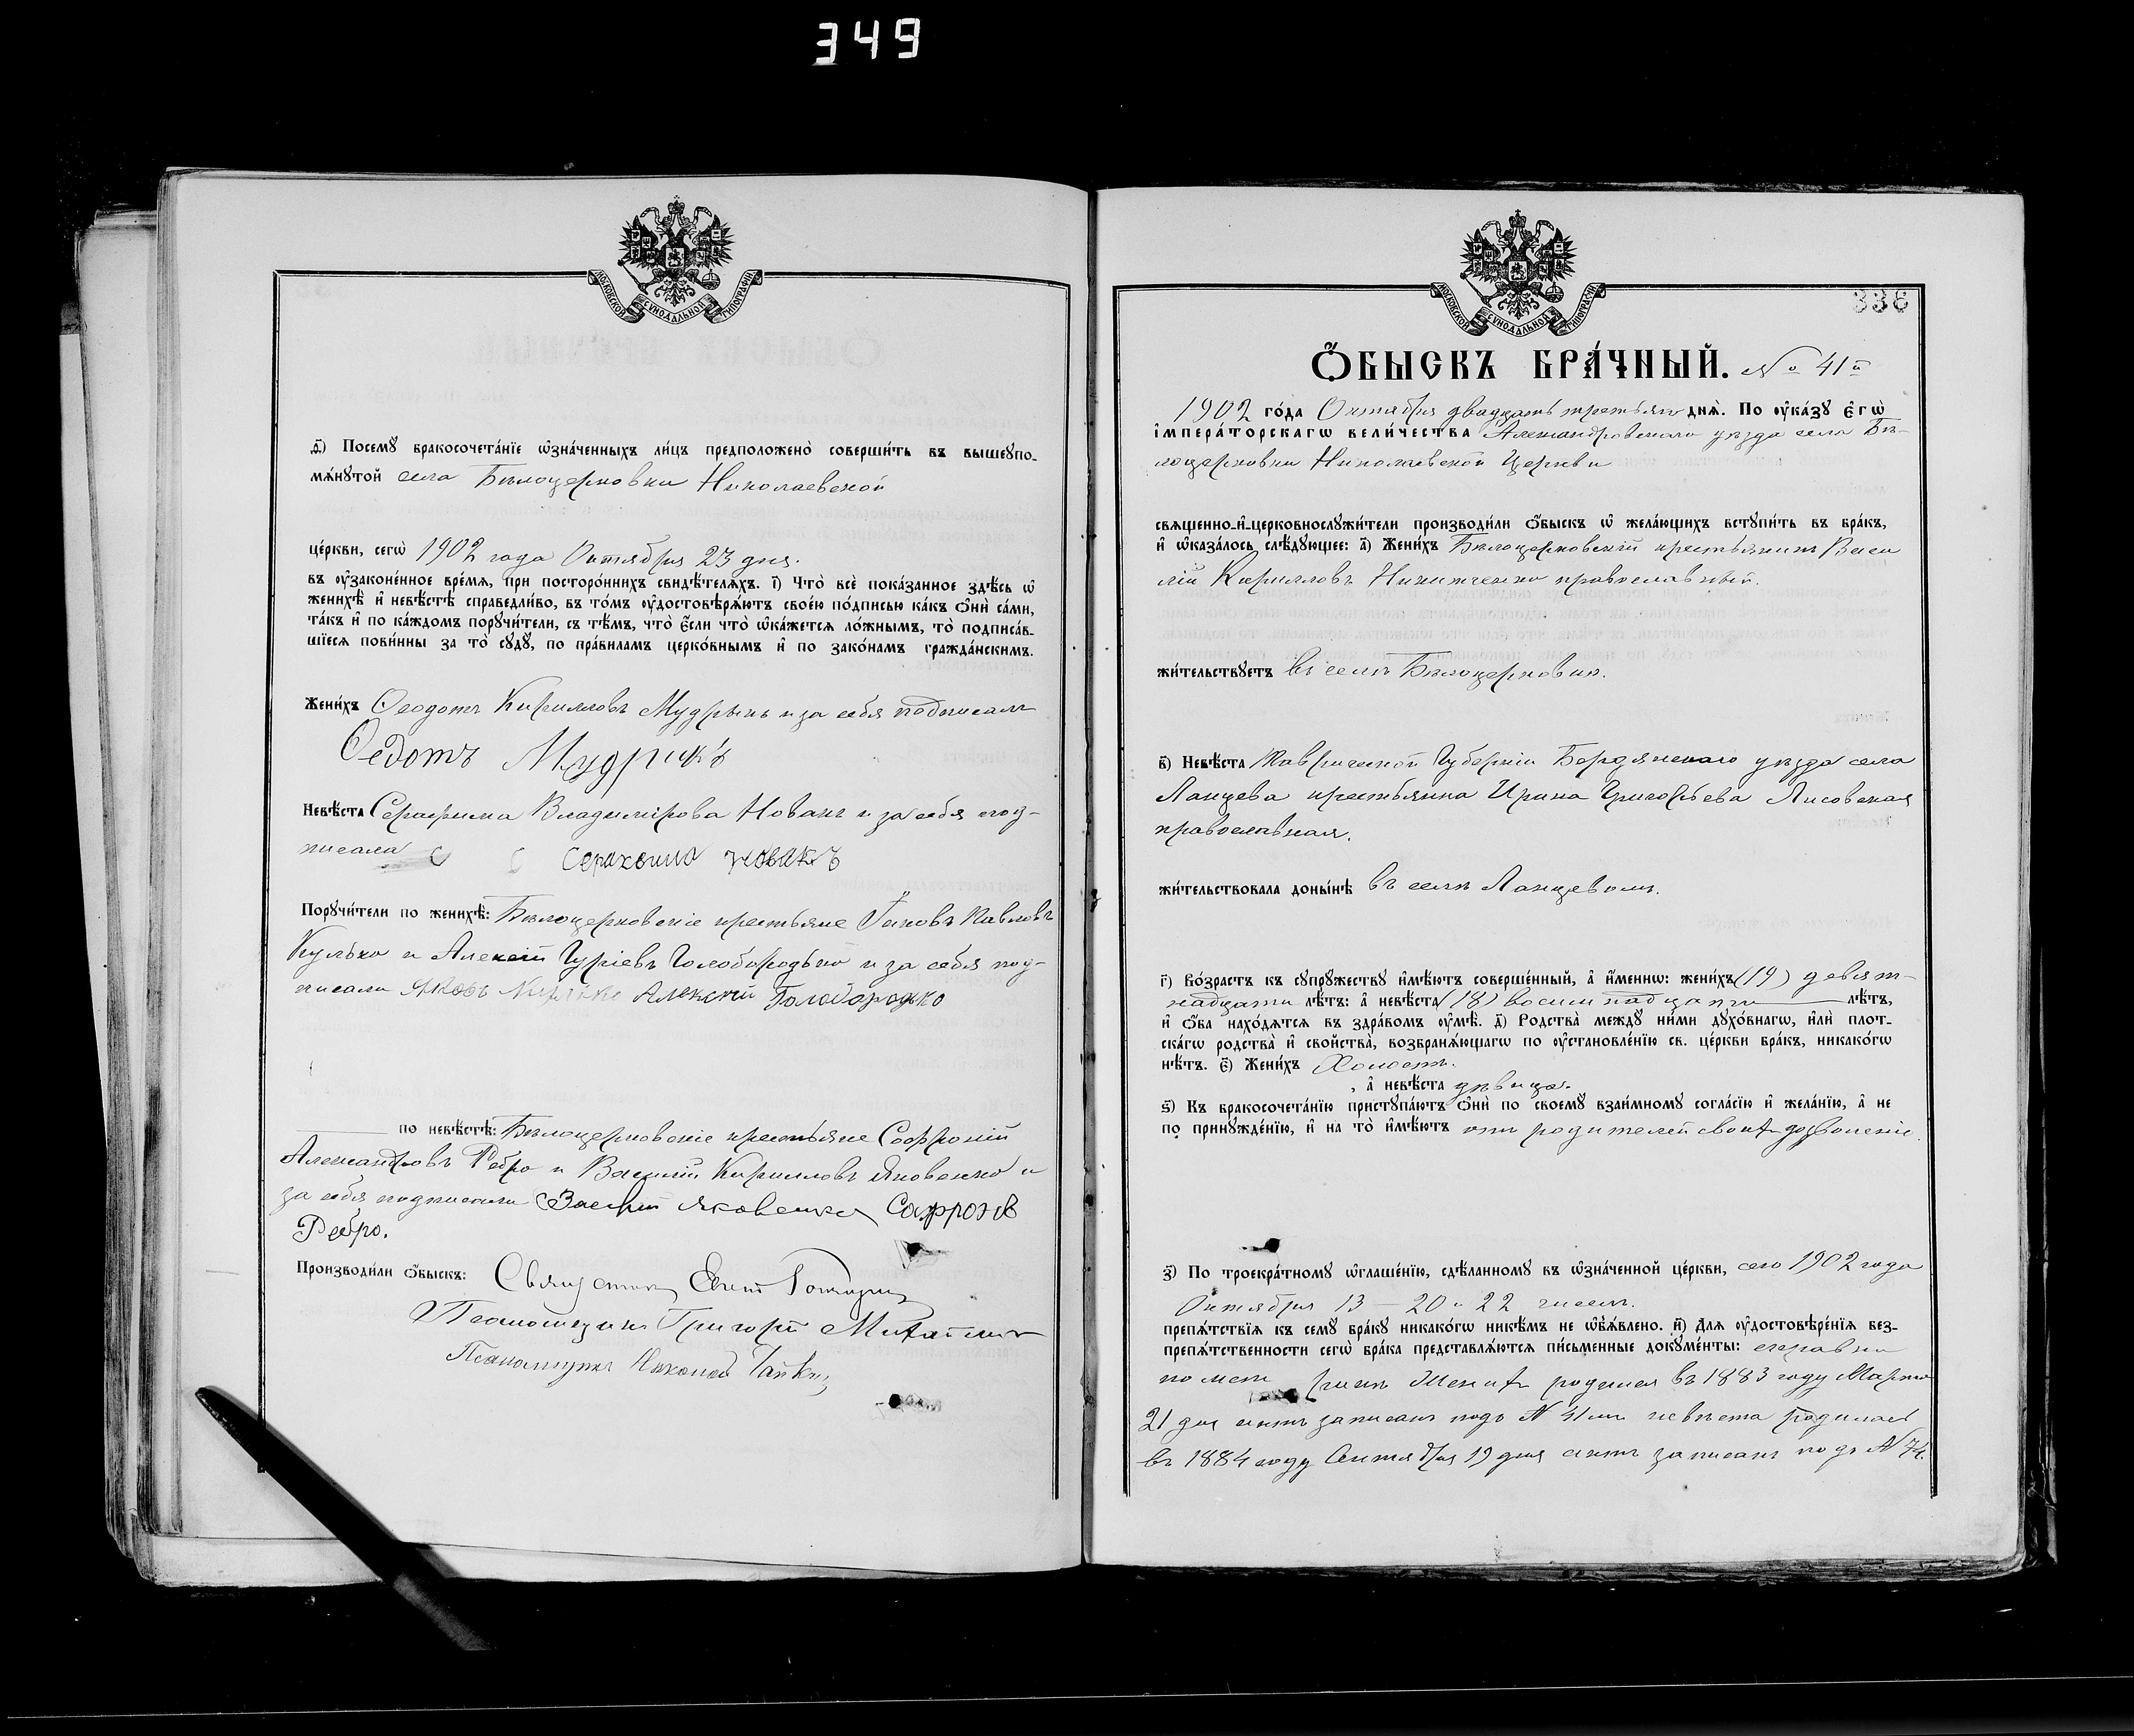 349
МОСКОВСКОЙ СѴНОДАЛЬНОЙ ТИПОГРАФІИ
д҃) Посемꙋ̀ бракосочета́нїе ѡ҆зна́ченныхъ ли́цъ предположено̀ соверши́ть въ вышеꙋпо-
мѧ́нꙋтой села Бѣлоцерковки Николаевской
це́ркви, сегѡ̀ 1902 года Октября 23 дня.
въ ᲂу҆зако́ненное вре́мѧ, при посторо́ннихъ свидѣ́телѧхъ. і҃) Что̀ всѐ пока́занное здѣ́сь ѡ҆
женихѣ̀ и҆ невѣ́стѣ справедли́во, въ то́мъ ᲂу҆достовѣрѧ́ютъ свое́ю по́дписью ка́къ ѻ҆нѝ са́ми,
та́къ и҆ по ка́ждомъ порꙋчи́тели, съ тѣ́мъ, что̀ є҆́сли что̀ ѡ҆ка́жетсѧ ло́жнымъ, то̀ подписа́в-
шїесѧ пови́нны за то̀ сꙋдꙋ̀, по пра́виламъ церко́внымъ и҆ по зако́намъ гражда́нскимъ.
Жени́хъ Ѳеодотъ Кирилловъ Мудрыкъ и за себя подписалъ
Ѳедотъ Мудрикъ
Невѣ́ста Серафима Владимірова Новакъ и за себя под-
писала С С Серахвима Новакъ
Порꙋчи́тели по женихѣ̀: Бѣлоцерковскіе крестьяне Іаковъ Павловъ
Кулько и Алексій Гуріевъ Голобородько и за себя под-
писали Яковъ Кулько Алексей Голобородько
по невѣ́стѣ: Бѣлоцерковскіе крестьяне Софроній
Александровъ Ребро и Василій Кирилловъ Яковенко и
за себя подписали Василій Яковенко Сафронъ
Ребро.
Производи́ли ѻ҆́быскъ: Священникъ
Псаломщикъ Григорій
Псаломщикъ Николай
МОСКОВСКОЙ СѴНОДАЛЬНОЙ ТИПОГРАФІИ
336
Ѻ҆́БЫСКЪ БРА́ЧНЫЙ. № 41й
1902 го́да Октября двадцать третьяго днѧ̀. По ᲂу҆ка́зꙋ є҆гѡ̀
і҆мпера́торскагѡ вели́чества Александровскаго уѣзда села Бѣ-
лоцерковки Николаевской Церкви
свѧще́нно-и҆-церковнослꙋжи́тели производи́ли ѻ҆́быскъ ѡ҆ жела́ющихъ встꙋпи́ть въ бра́къ,
и҆ ѡ҆каза́лось слѣ́дꙋющее: а҃) Жени́хъ Бѣлоцерковскій крестьянинъ Васи
лій Кирилловъ Никитченко православный.
жи́тельствꙋетъ въ селѣ Бѣлоцерковкѣ.
в҃) Невѣ́ста Таврической Губерніи Бердянскаго уѣзда села
Ланцева крестьянка Ирина Григорьева Лисовская
православная.
жи́тельствовала доны́нѣ въ селѣ Ланцевомъ.
г҃) Во́зрастъ къ сꙋпрꙋ́жествꙋ и҆мѣ́ютъ соверше́нный, а҆ и҆́меннѡ: жени́хъ (19) девят-
надцати лѣ́тъ: а҆ невѣ́ста (18) восемнадцати лѣ́тъ,
и҆ ѻ҆́ба нахо́дѧтсѧ въ здра́вомъ ᲂу҆мѣ̀. д҃) Родства̀ междꙋ̀ ни́ми дꙋхо́внагѡ, и҆лѝ плот-
ска́гѡ родства̀ и҆ сво́йства̀, возбранѧ́ющагѡ по ᲂу҆становле́нїю св. це́ркви бра́къ, никако́гѡ
нѣ́тъ. є҃) Жени́хъ Холостъ.
, а҆ невѣ́ста дѣвица.
ѕ҃) Къ бракосочета́нїю пристꙋпа́ютъ ѻ҆нѝ по своемꙋ̀ взаи́мномꙋ согла́сїю и҆ жела́нїю, а҆ не
по принꙋжде́нїю, и҆ на то̀ и҆мѣ́ютъ отъ родителей своихъ дозволеніе.
з҃) По троекра́тномꙋ ѡ҆глаше́нїю, сдѣ́ланномꙋ въ ѡ҆зна́ченной це́ркви, сего 1902 года
Октября 13 – 20 и 22 чиселъ.
препѧ́тствїѧ къ семꙋ̀ бра́кꙋ никако́гѡ никѣ́мъ не ѡ҆б̾ѧ́влено. и҃) Длѧ ᲂу҆достовѣре́нїѧ без-
препѧ́тственности сегѡ̀ бра́ка представлѧ́ютсѧ пи́сьменные докꙋме́нты: справки
по мет рикѣ Женихъ родился въ 1883 году Марта
21 дня актъ записанъ подъ № 41мъ невѣста родилась
въ 1884 году Сентября 19 дня актъ записанъ подъ № 74.